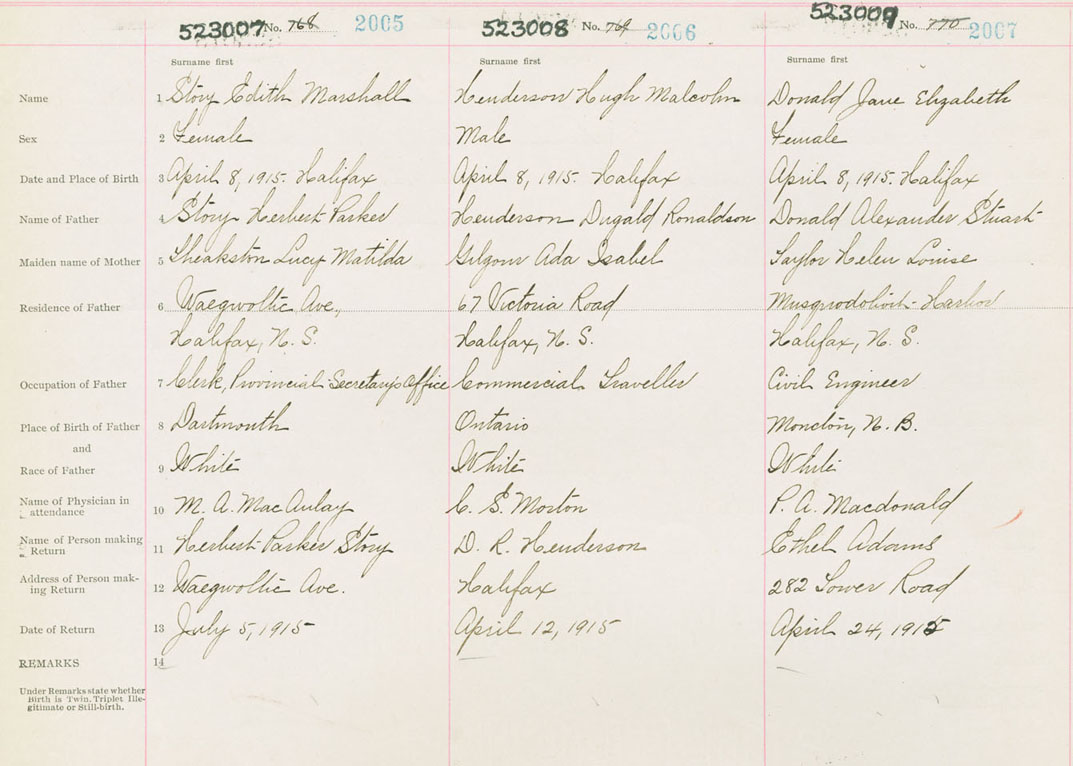 523007 No. 768 2005 523008 No. 769 2006 523009 No. 770 2007
Surname first Surname first Surname first
Name 1 Story Edith Marshall Henderson Hugh Malcolm Donald Jane Elizabeth
Sex 2 Female Male Female
Date and Place of Birth 3 April 8, 1915. Halifax April 8, 1915. Halifax April 8, 1915. Halifax
Name of Father 4 Story Herbert Parker Henderson Dugald Ronaldson Donald Alexander Stuart
Maiden name of Mother 5 Sheakston Lucy Matilda Gilgour Ada Isabel Taylor Helen Louise
Residence of Father 6 Waegwoltic Ave., 67 Victoria Road Musquodoboit Harbor
Halifax, N. S. Halifax, N. S. Halifax, N. S.
Occupation of Father 7 Clerk, Provincial Secretary's Office Commercial Traveller Civil Engineer
Place of Birth of Father 8 Dartmouth Ontario Moncton, N. B.
and
Race of Father 9 White White White
Name of Physician in
attendance 10 M. A. MacAulay C. S. Morton P. A. Macdonald
Name of Person making
Return 11 Herbert Parker Story D. R. Henderson Ethel Adams
Address of Person mak-
ing Return 12 Waegwoltic Ave. Halifax 282 Tower Road
Date of Return 13 July 5, 1915 April 12, 1915 April 24, 1915
REMARKS 14
Under Remarks state whether
Birth is Twin, Triplet, Ille-
gitimate or Still-birth.